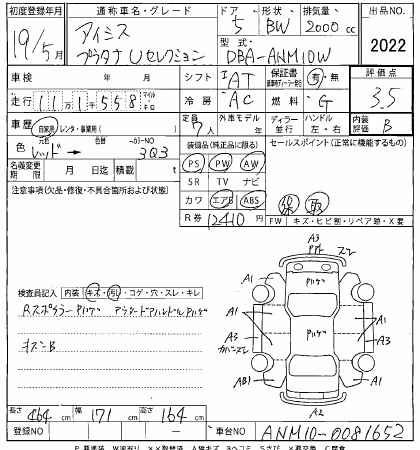 初度登録年月 通称車名・グレード ドア 形状 排気量 出品NO.
19/5月 アイシス プラタナ Uセレクション 5 BW 2000 cc 2022
型式 DBA-ANM10W
車検 年 月 シフト IAT 保証書 有・無 評価点
走行 11万1千558 マイル キロ 冷房 AC 燃料 G 3.5
車歴 自家用 レンタ・事業用( ) 定員 7人 外車モデル 年 ディーラー 並行 ハンドル 左・右 内装評価 B
色 元色 レッド → 色替 カラーNO 3Q3 装備品(純正品に限る) セールスポイント(正常に機能するもの)
名義変更期限 月 日迄 積載 t PS PW AW
注意事項(欠品・修復・不具合箇所および状態) SR TV ナビ
カワ エアB ABS
R券 12410 円 FW キズ・ヒビ割・リペア跡・X要
A3
検査員記入 内装 キズ・汚れ・コゲ・穴・スレ・キレ
Rスポイラーハゲ
キズ=B
A1 A1
A1 A1
A3 A3
AB1 A1
A2
長さ 464 cm 幅 171 cm 高さ 164 cm
登録NO 車台NO ANM10-0081652